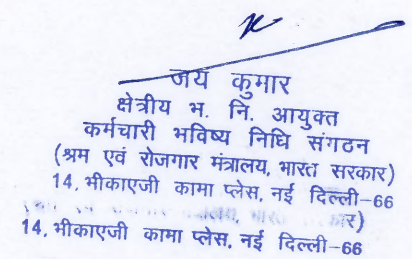 जय कुमार
क्षेत्रीय भ. नि. आयुक्त
कर्मचारी भविष्य निधि संगठन
(श्रम एवं रोजगार मंत्रालय, भारत सरकार)
14, भीकाएजी कामा प्लेस, नई दिल्ली-66
14, भीकाएजी कामा प्लेस, नई दिल्ली-66